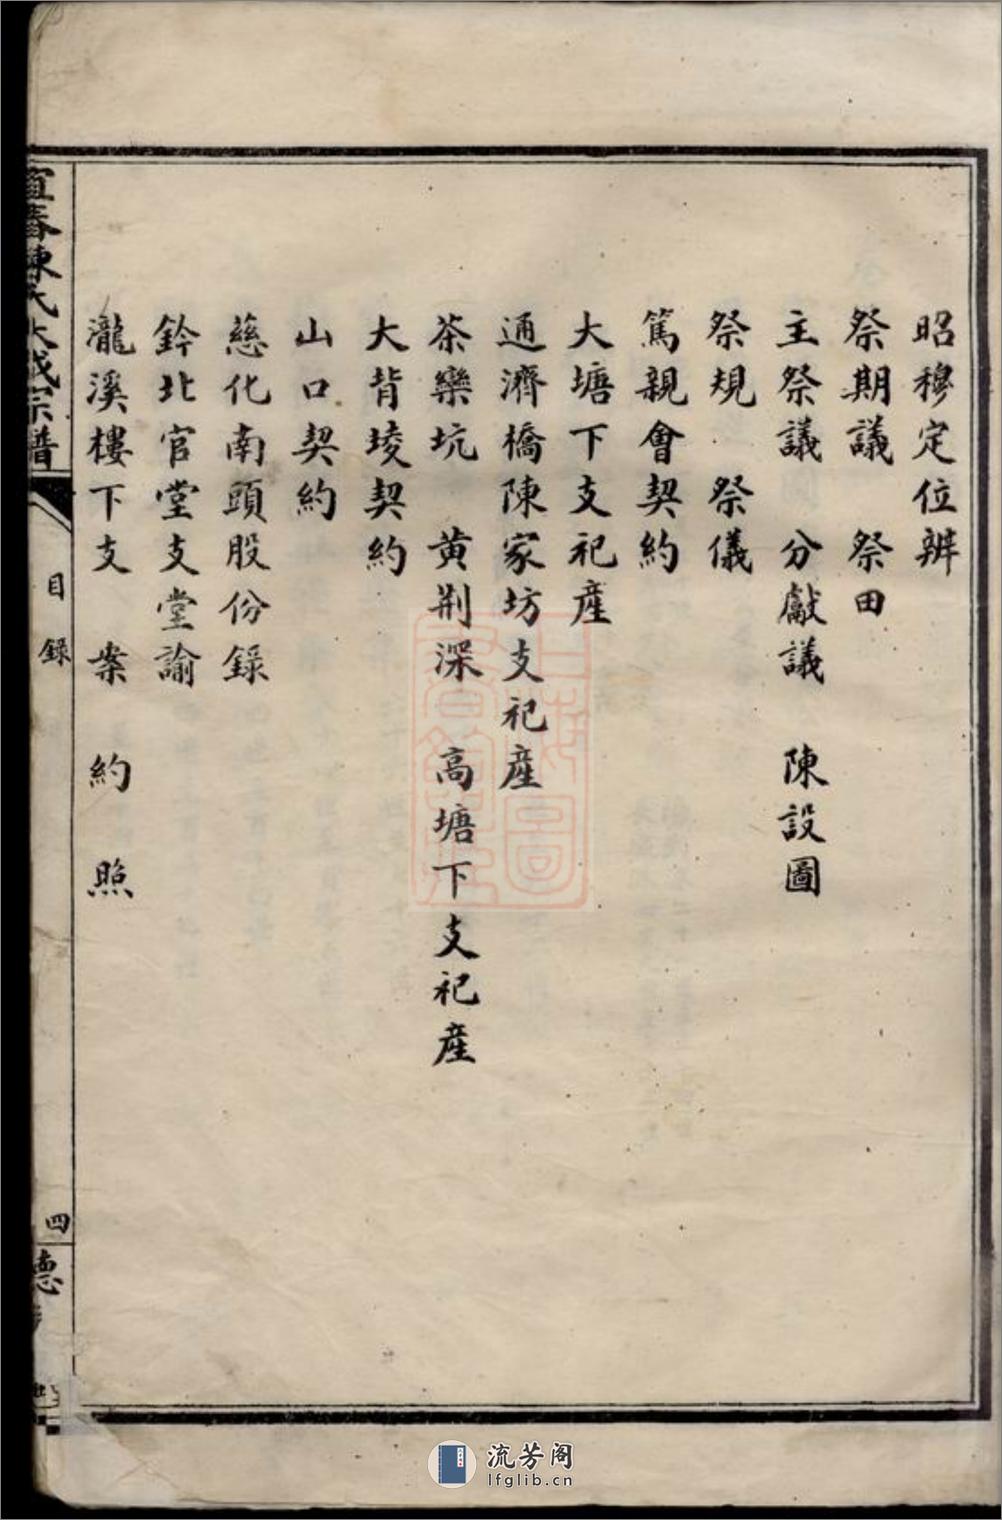 昭穆定位辨
祭期議　祭田
主祭議　分獻議　陳設圖
祭規　祭儀
篤親會契約
大塘下支祀産
通濟橋陳家坊支祀産
茶欒坑　黄荆深　高塘下支祀産
大背堎契約
山口契約
慈化南頭股份錄
鈐北官堂支堂諭
瀧溪樓下支　案　約　照
宜春陳氏大成宗譜
目錄
四
德
流芳阁
lfglib.cn